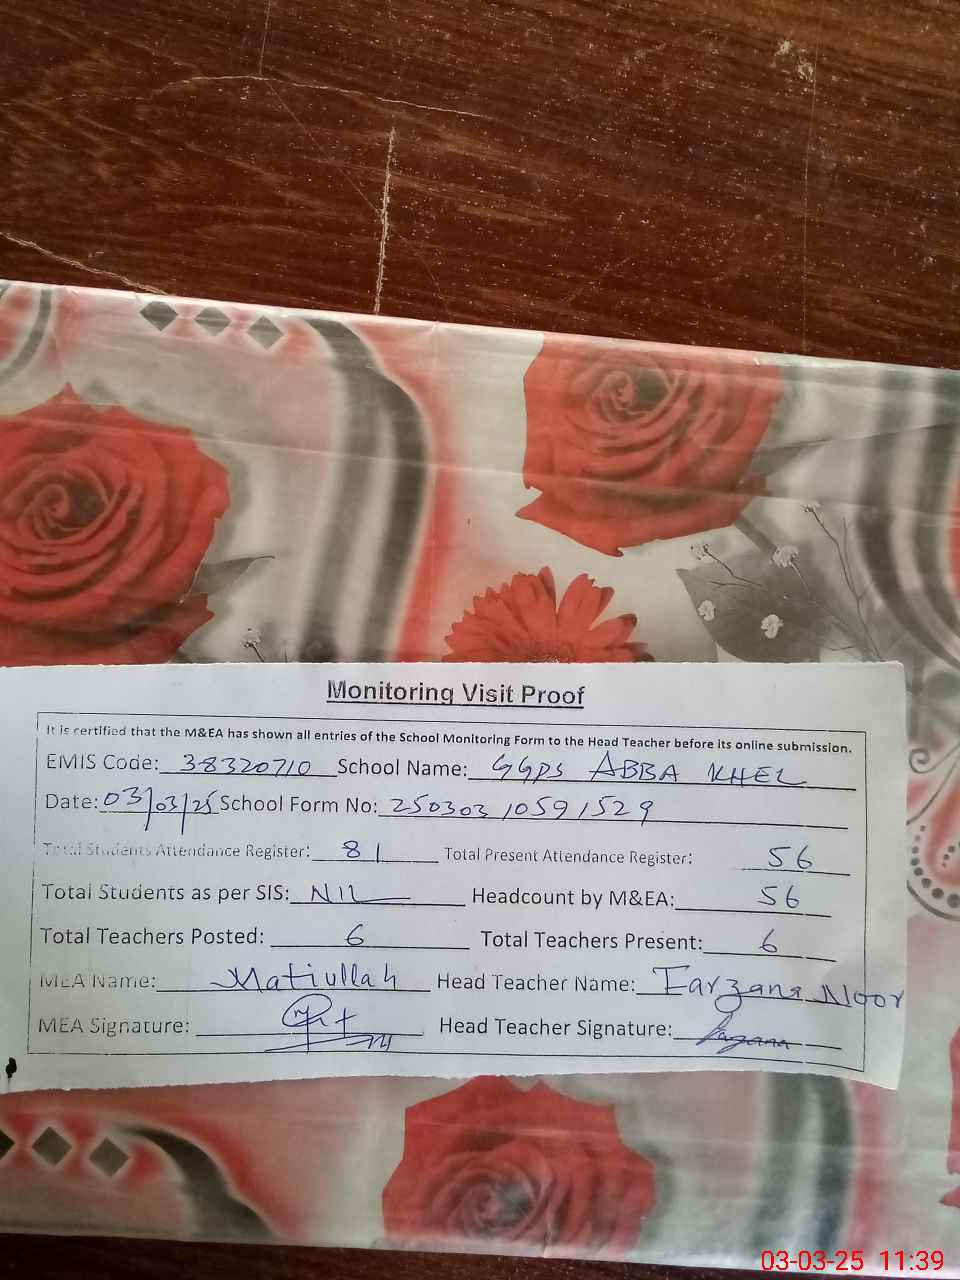 Monitoring Visit Proof
It is certified that the M&EA has shown all entries of the School Monitoring Form to the Head Teacher before its online submission.
EMIS Code: 38320710 School Name: GGPS ABBA KHEL
Date: 03/03/25 School Form No: 250303 10591529
Total Students Attendance Register: 81 Total Present Attendance Register: 56
Total Students as per SIS: NIL Headcount by M&EA: 56
Total Teachers Posted: 6 Total Teachers Present: 6
MEA Name: Matiullah Head Teacher Name: Farzana Noor
MEA Signature: Head Teacher Signature:
03-03-25 11:39